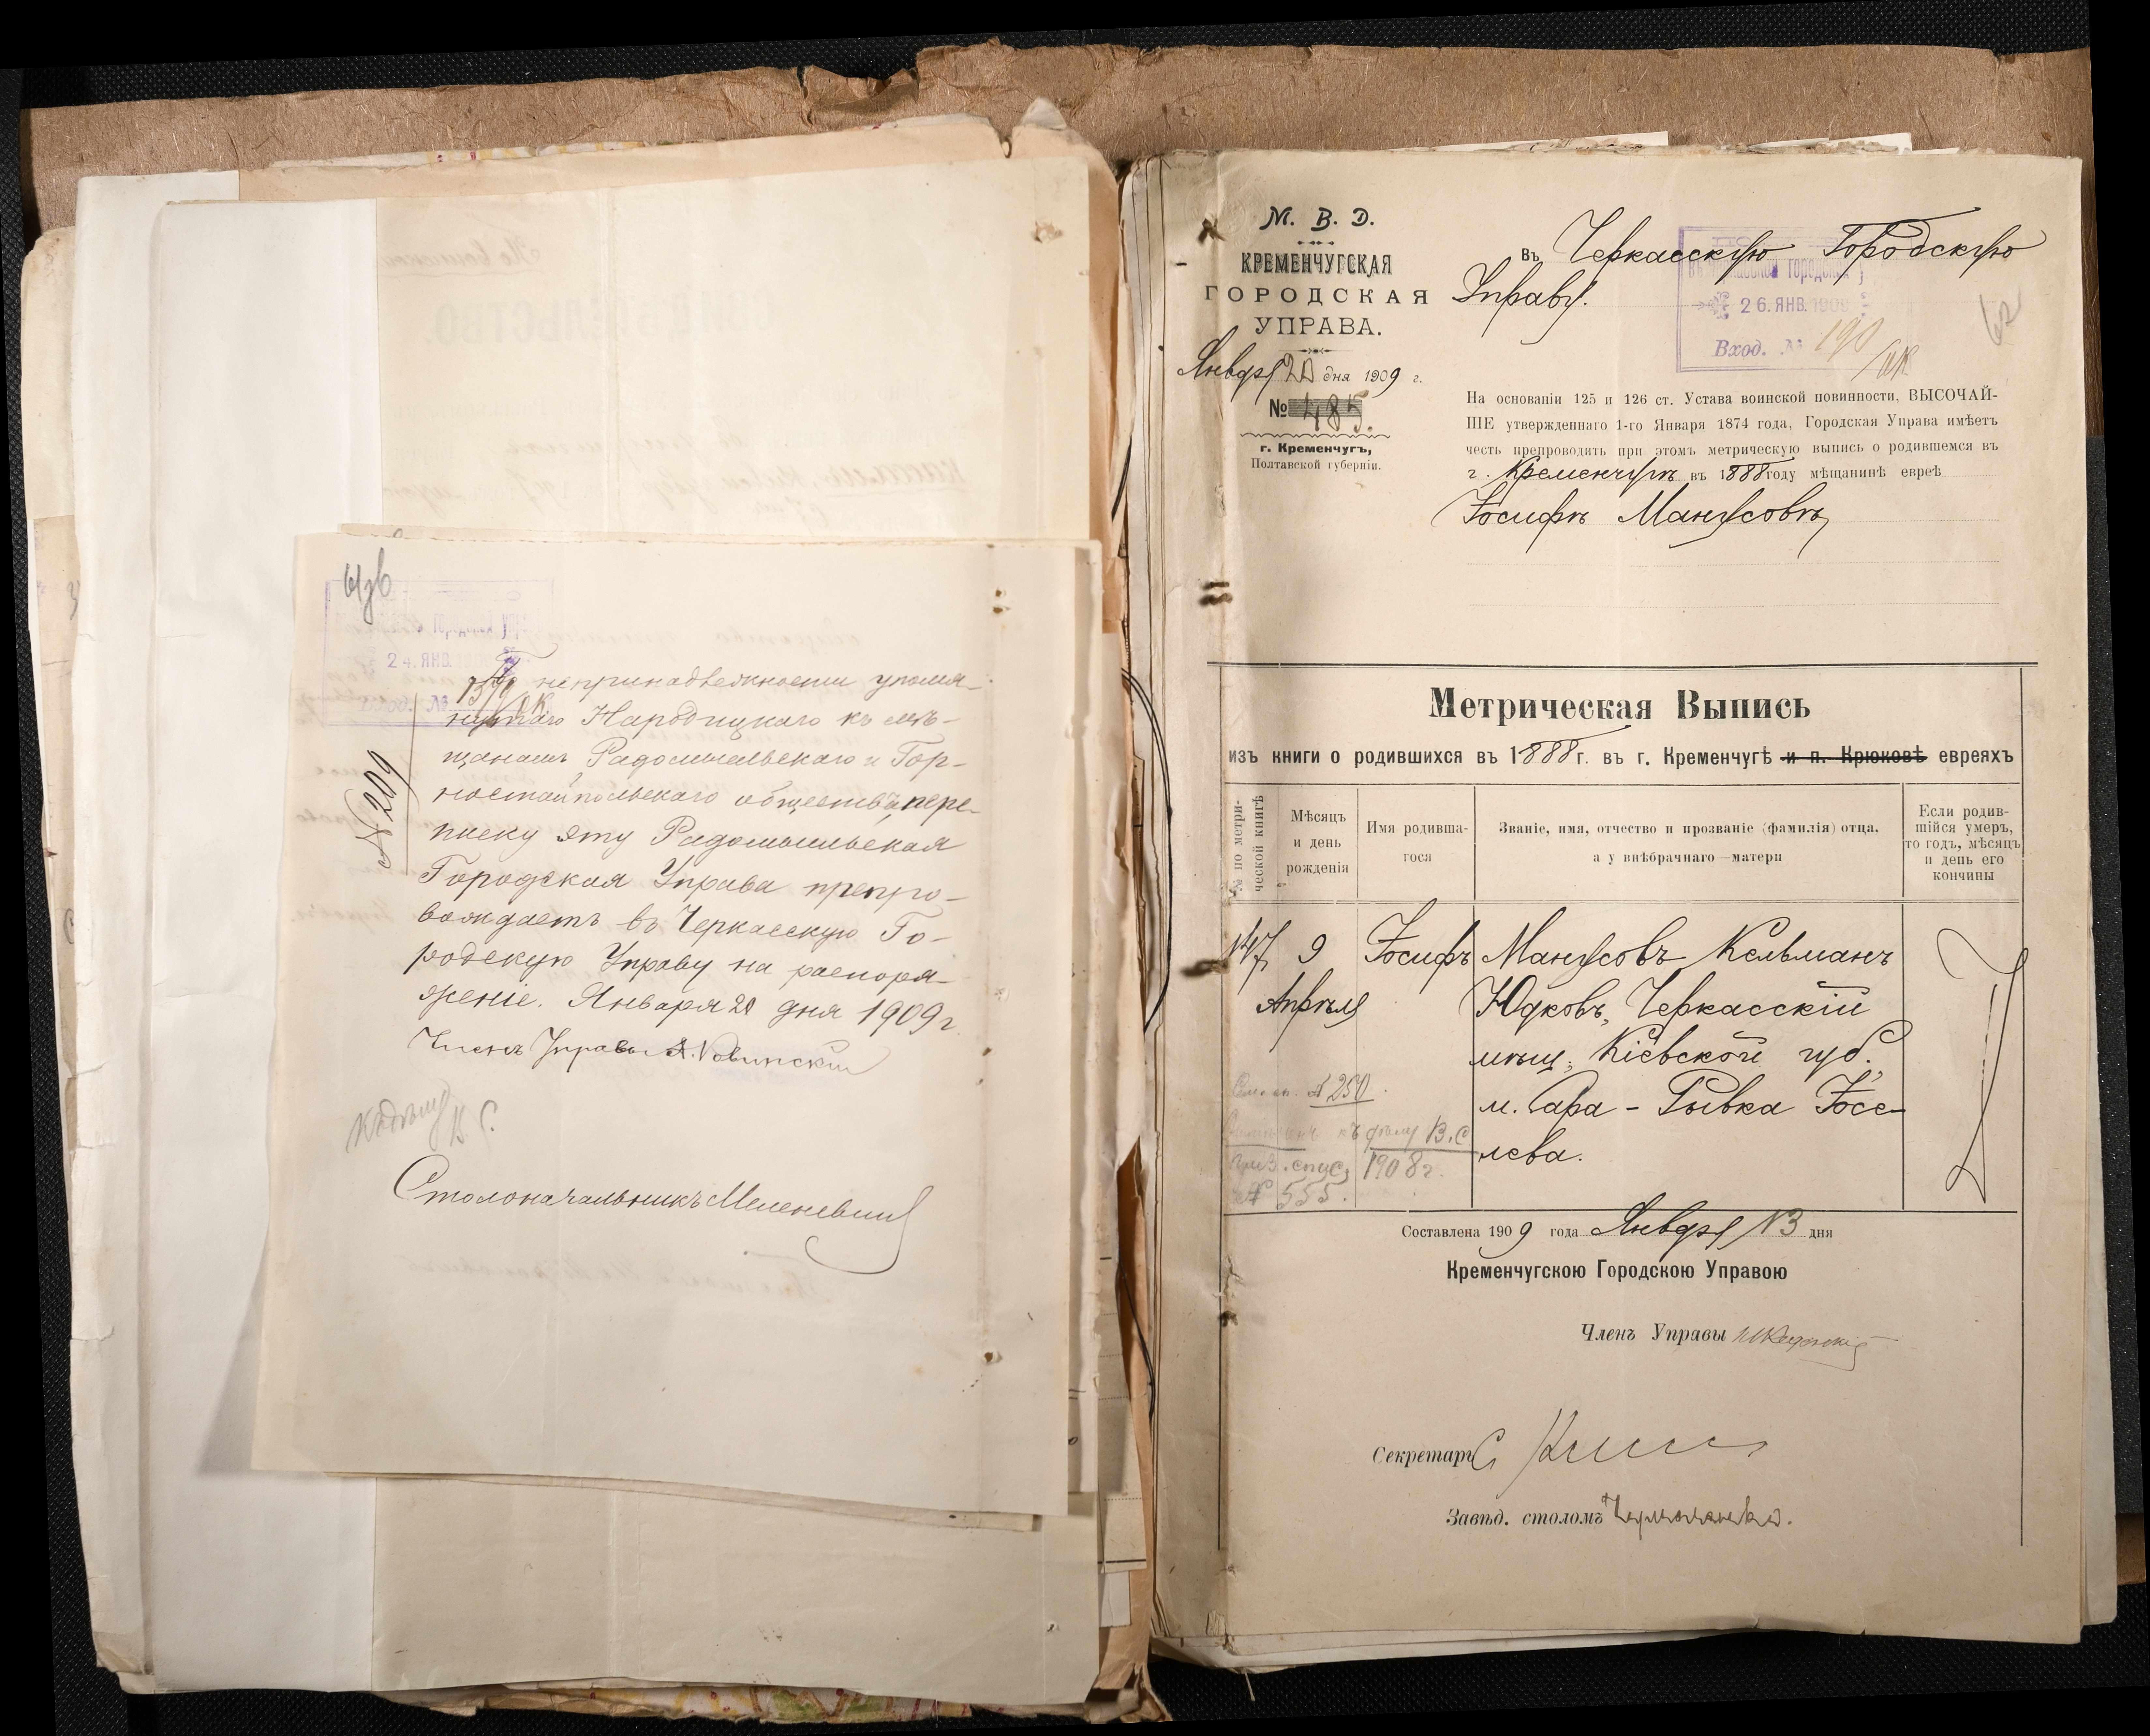 24. ЯНВ.
По непринадлежности упомя-
нутаго Народицкаго къ мѣ-
щанамъ Радомысльскаго и Гор-
ностайпольскаго обществъ, пере-
писку эту Радомысльская
Городская Управа препро-
вождаетъ въ Черкасскую Го-
родскую Управу на распоря-
женіе. Января 20 дня 1909 г.
№ 209
Членъ Управы
К дѣлу
В. С.
Столоначальникъ
М. В. Д.
КРЕМЕНЧУГСКАЯ
ГОРОДСКАЯ
УПРАВА.
Января 20 дня 1909 г.
№ 485.
г. Кременчугъ,
Полтавской губерніи.
Въ Черкасскую Городскую
Управу.
26. ЯНВ. 1909
Вход. № 190
62
На основаніи 125 и 126 ст. Устава воинской повинности, ВЫСОЧАЙ-
ШЕ утвержденнаго 1-го Января 1874 года, Городская Управа имѣетъ
честь препроводить при этомъ метрическую выпись о родившемся въ
г. Кременчугѣ въ 1888 году мѣщанинѣ евреѣ
Іосифѣ Манусовѣ
Метрическая Выпись
изъ книги о родившихся въ 1888 г. въ г. Кременчугѣ и п. Крюковѣ евреяхъ
№ по метри-
ческой книгѣ
Мѣсяцъ
и день
рожденія
Имя родивша-
гося
Званіе, имя, отчество и прозваніе (фамилія) отца,
а у внѣбрачнаго—матери
Если родив-
шійся умеръ,
то годъ, мѣсяцъ
и день его
кончины
147 9 Іосифъ Манусовъ Кельманъ
Апрѣля Юдковъ, Черкасскій
мѣщ. Кіевской губ.
м. Сара-Рывка Іосе-
лева.
№ 250
къ дѣлу В. С.
Приз. спис. 1908 г.
№ 555.
Составлена 1909 года Января 13 дня
Кременчугскою Городскою Управою
Членъ Управы
Секретарь
Завѣд. столомъ